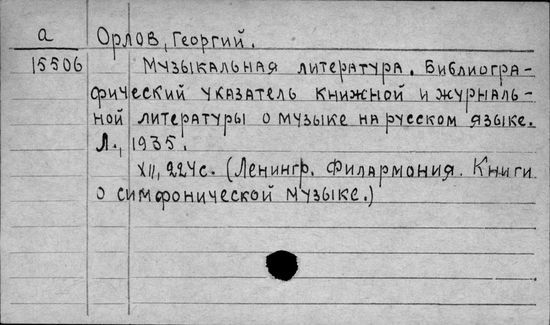 а Орлов, Георгий.
15506 Музыкальная литература. Библиогра-
фический указатель книжной и журналь-
ной литературы о музыке на русском языке.
Л., 1935.
XII, 224с. (Ленингр. Филармония. Книги
о симфонической музыке.)